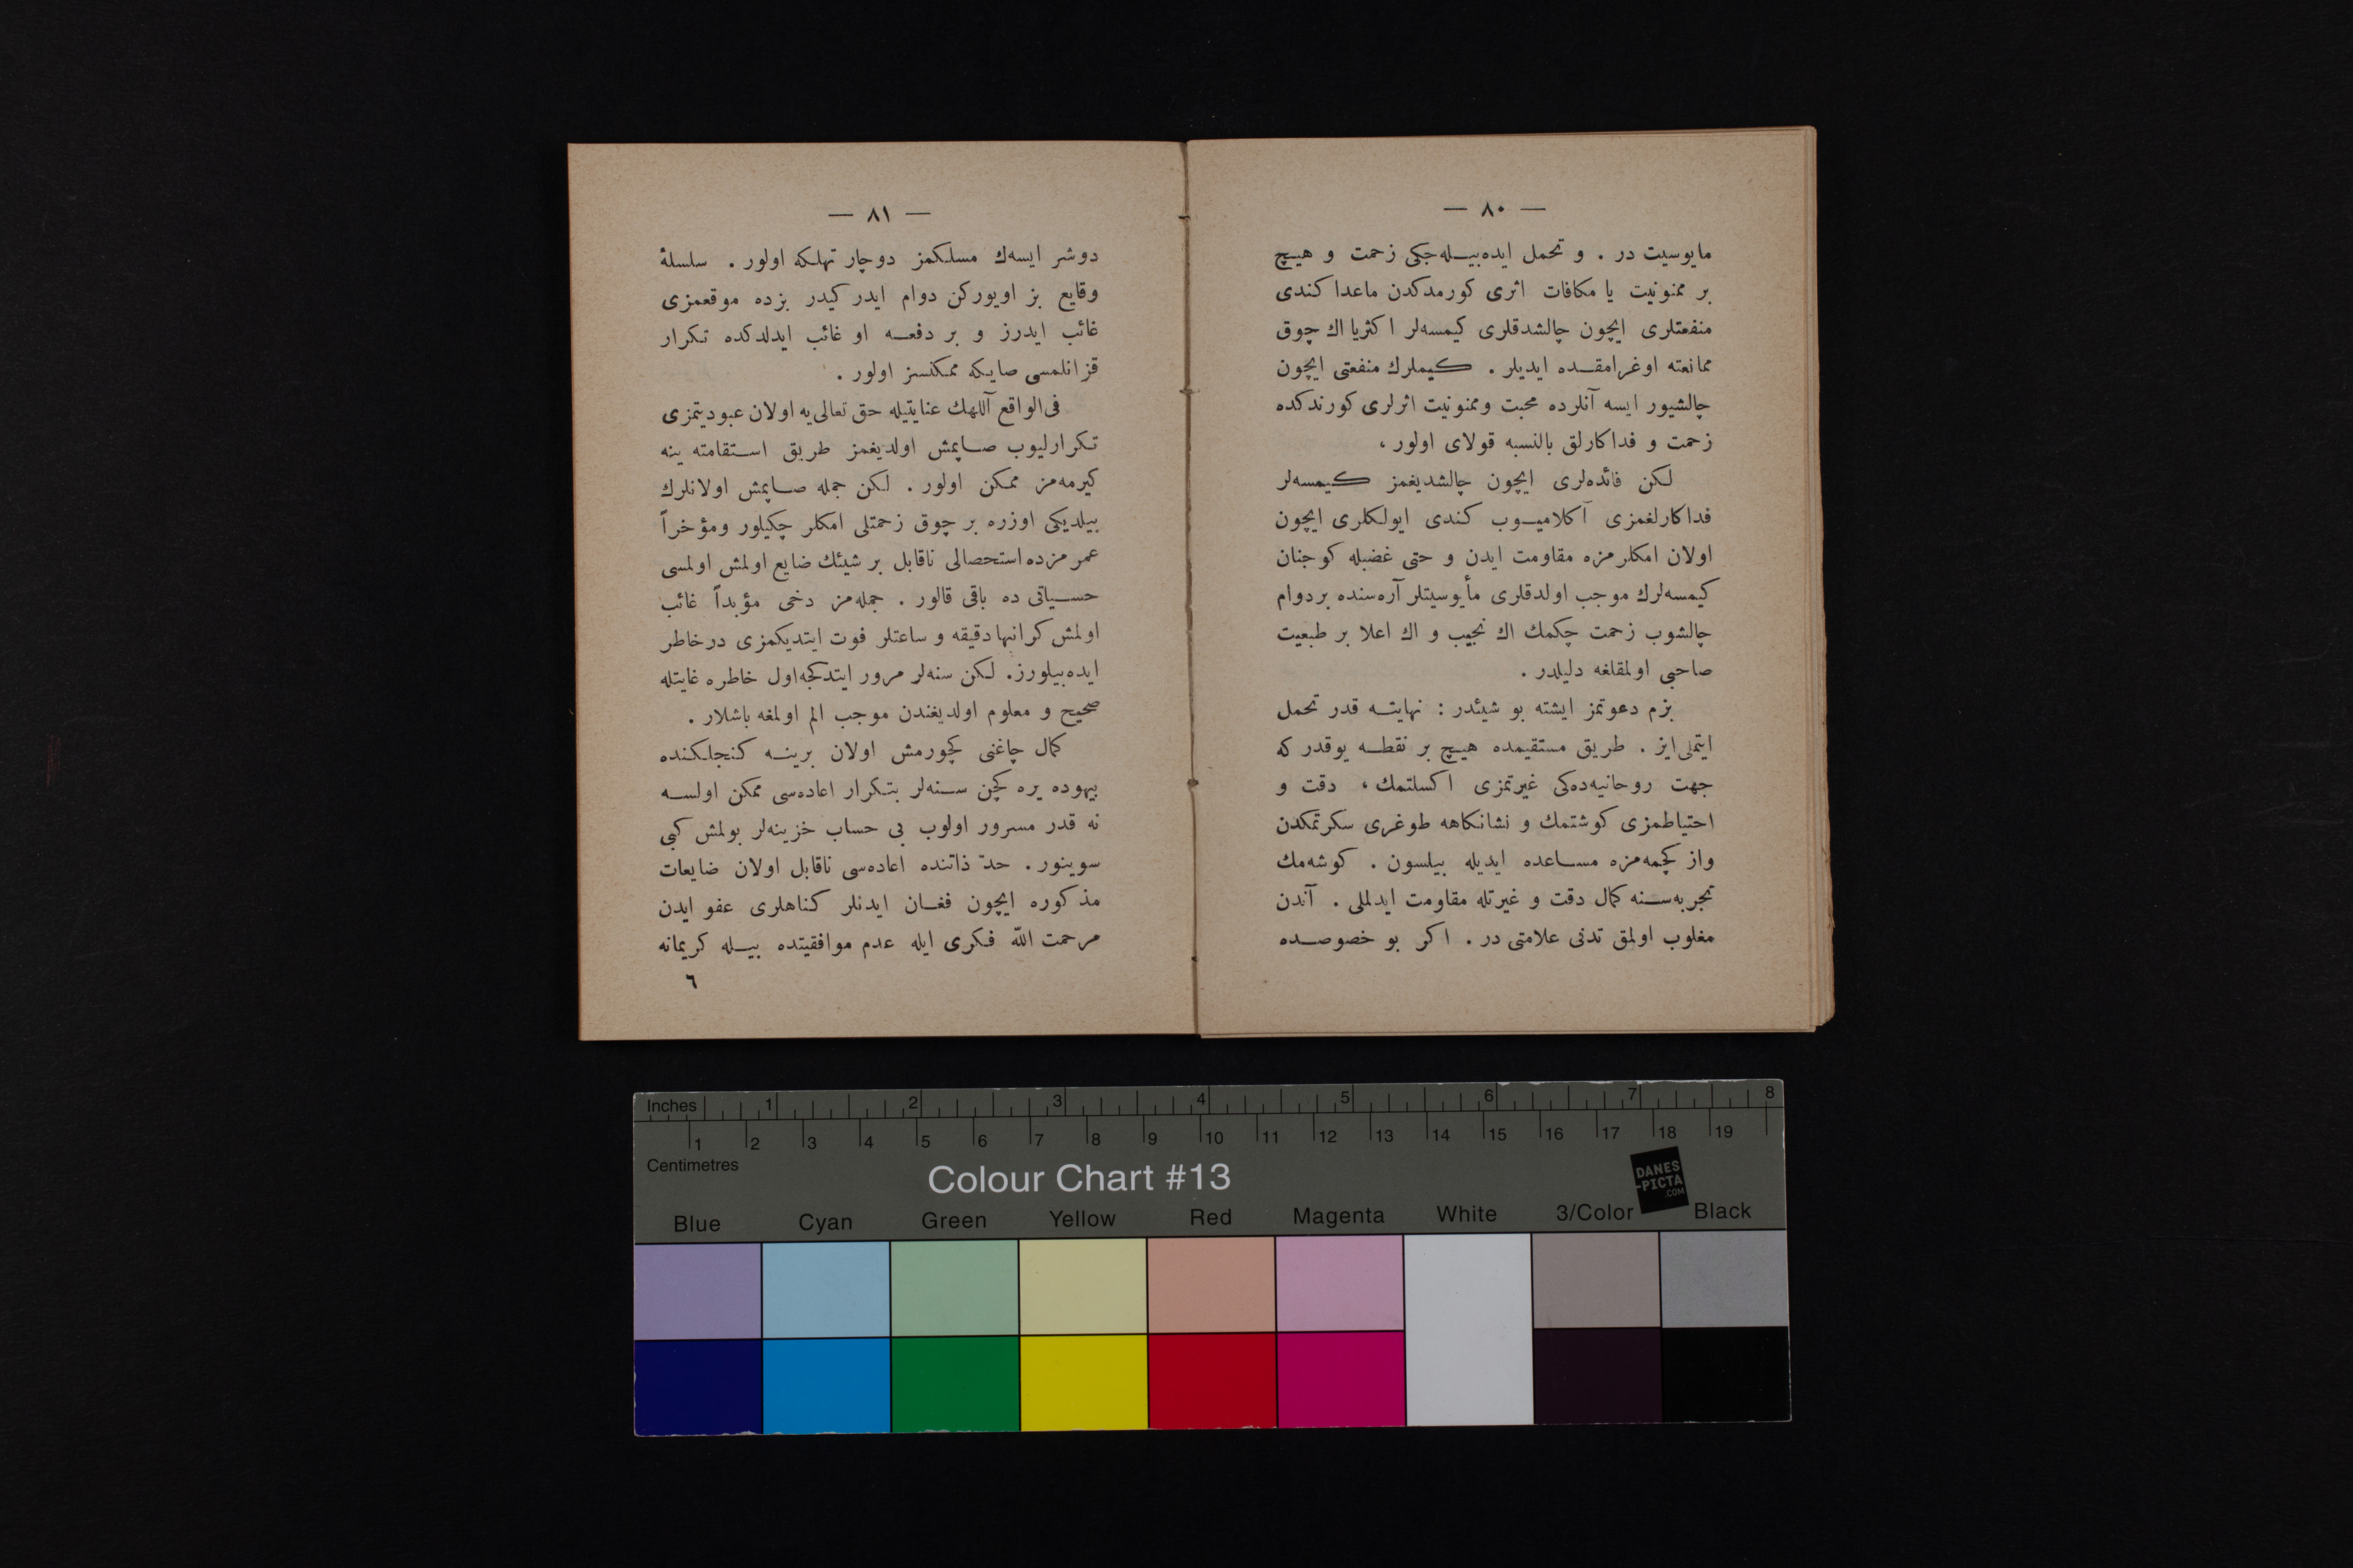 — ٨٠ —
مايوسيت در . و تحمل ايده‌بيــله‌جكى زحمت و هيــچ
بر ممنونيت يا مكافات اثرى كورمدكدن ماعدا كندى
منفعتلرى ايچون چالشدقلرى كيمسه‌لر اكثريا اك چوق
ممانعته اوغرامقــده ايديلر . كيملرك منفعتى ايچون
چالشيور ايسه آنلرده محبت وممنونيت اثرلرى كورندكده
زحمت و فداكارلق بالنسبه قولاى اولور ،
لكن فائده‌لرى ايچون چالشديغمز كيمسه‌لر
فداكارلغمزى آكلاميــوب كندى ايولكلرى ايچون
اولان امكلرمزه مقاومت ايدن و حتى غضبله كوجنان
كيمسه‌لرك موجب اولدقلرى مأيوسيتلر آره‌سنده بردوام
چالشوب زحمت چكمك اك نجيب و اك اعلا بر طبعيت
صاحبى اولمقلغه دليلدر .
بزم دعوتمز ايشته بو شيئدر : نهايتــه قدر تحمل
ايتملى‌ايز . طريق مستقيمده هيــچ بر نقطــه يوقدر كه
جهت روحانيه‌ده‌كى غيرتمزى اكسلتمك ، دقت و
احتياطمزى كوشتمك و نشانكاهه طوغرى سكرتمكدن
واز كچمه‌مزه مســاعده ايديله بيلسون . كوشه‌مك
تجربه‌ســنه كمال دقت و غيرتله مقاومت ايدلملى . آندن
مغلوب اولمق تدنى علامتى در . اكر بو خصوصــده
— ٨١ —
دوشر ايسه‌ك مسلكمز دوچار تهلكه اولور . سلسلۀ
وقايع بز اويوركن دوام ايدر كيدر بزده موقعمزى
غائب ايدرز و بر دفعــه او غائب ايدلدكده تكرار
قزانلمسى صايكه ممكنسز اولور .
فى‌الواقع آللهك عنايتيله حق تعالى‌يه اولان عبوديتمزى
تكرارليوب صــاپمش اولديغمز طريق اســتقامته ينه
كيرمه‌مز ممكن اولور . لكن جمله صــاپمش اولانلرك
بيلديكى اوزره بر چوق زحمتلى امكلر چكيلور ومؤخراً
عمرمزده استحصالى ناقابل بر شيئك ضايع اولمش اولمسى
حســياتى ده باقى قالور . جمله‌مز دخى مؤبداً غائب
اولمش كرانبها دقيقه و ساعتلر فوت ايتديكمزى درخاطر
ايده‌بيلورز. لكن سنه‌لر مرور ايتدكجه‌اول خاطره غايتله
صحيح و معلوم اولديغندن موجب الم اولمغه باشلار .
كمال چاغنى كچورمش اولان برينــه كنجلكنده
بيهوده يره كچن ســنه‌لر بتكرار اعاده‌سى ممكن اولســه
نه قدر مسرور اولوب بى حساب خزينه‌لر بولمش كبى
سوينور . حدّ ذاتنده اعاده‌سى ناقابل اولان ضايعات
مذكوره ايچون فغــان ايدنلر كناهلرى عفو ايدن
مرحمت الله فكرى ايله عدم موافقيتده بيــله كريمانه
٦
Inches 1 2 3 4 5 6 7 8
1 2 3 4 5 6 7 8 9 10 11 12 13 14 15 16 17 18 19
Centimetres
Colour Chart #13
DANES
-PICTA
.COM
Blue Cyan Green Yellow Red Magenta White 3/Color Black